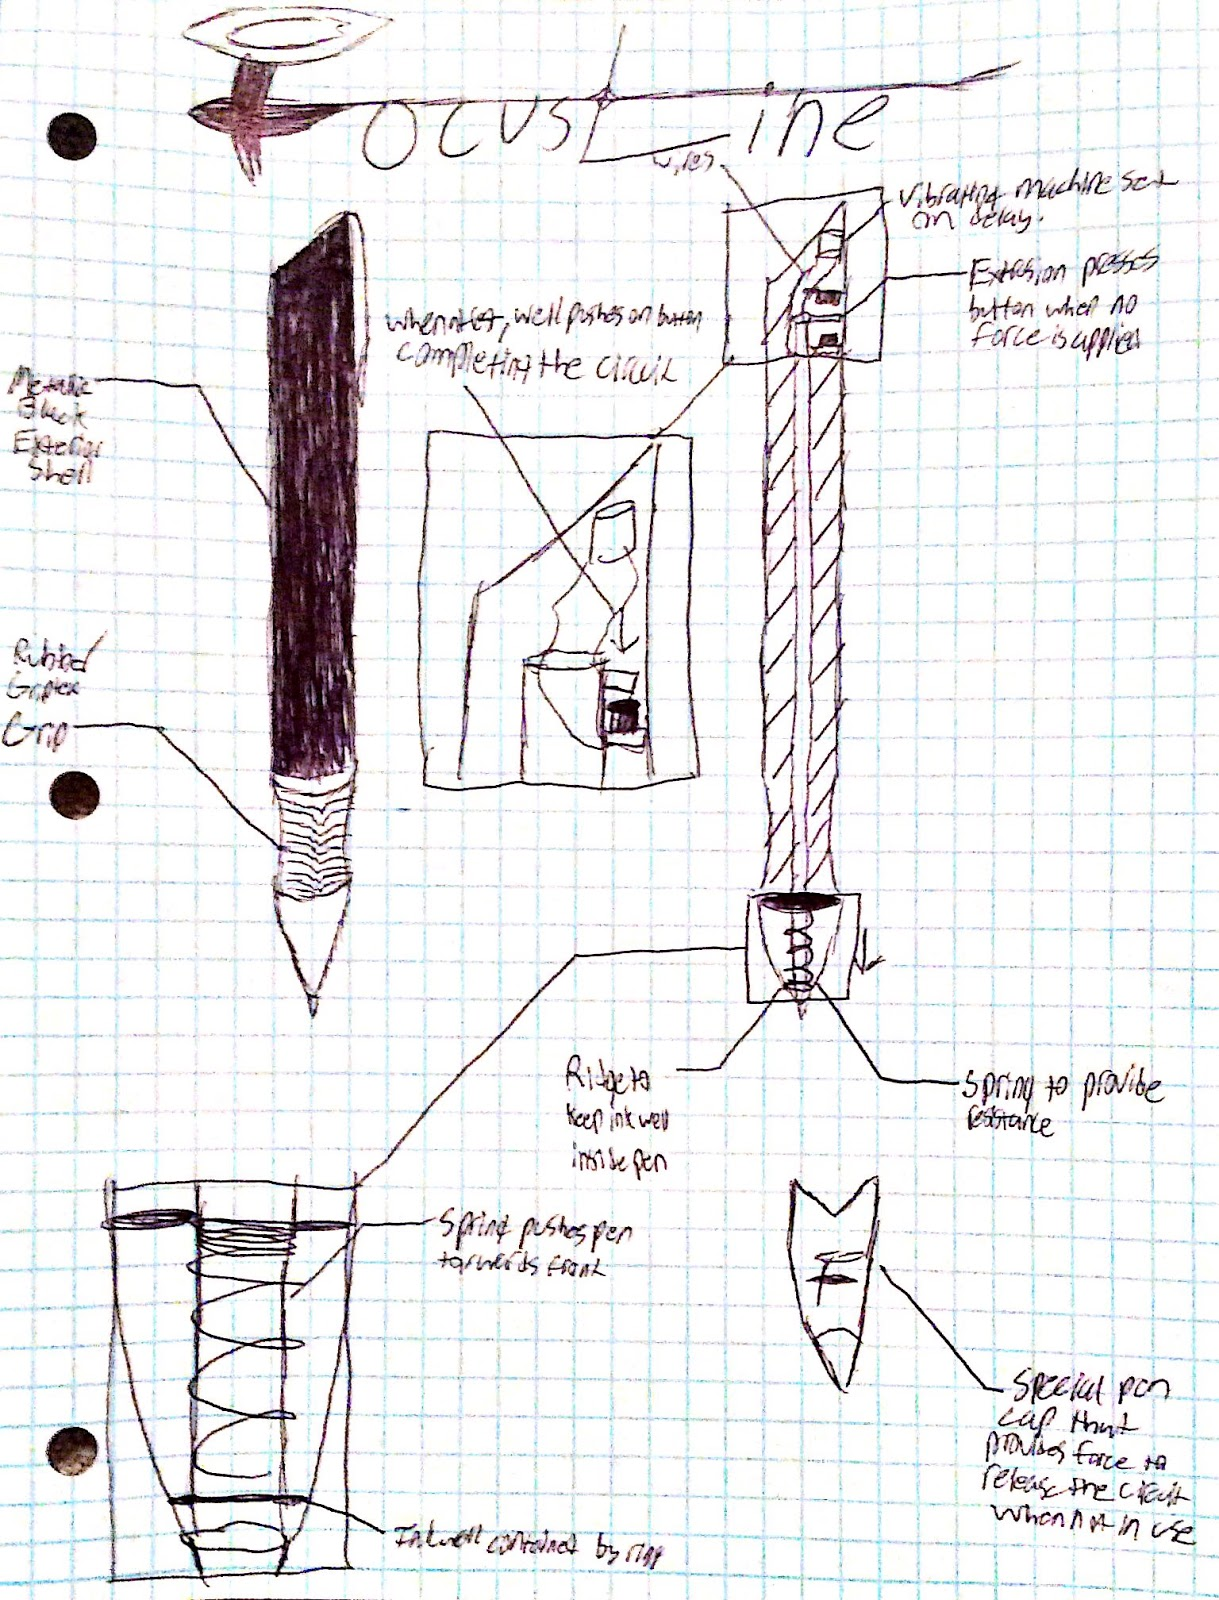 Focus Line
wires
Vibrating machine set
on delay.
Extrusion presses
button when no
force is applied
when not, well pushes on button
completing the circuit
Metallic
Black
Exterior
Shell
Rubber
Grip
Ridge to
keep ink well
inside pen
Spring to provide
resistance
Spring pushes pen
towards front
F
Special pen
cap that
provides force to
release the circuit
when not in use
Inkwell contained by ring